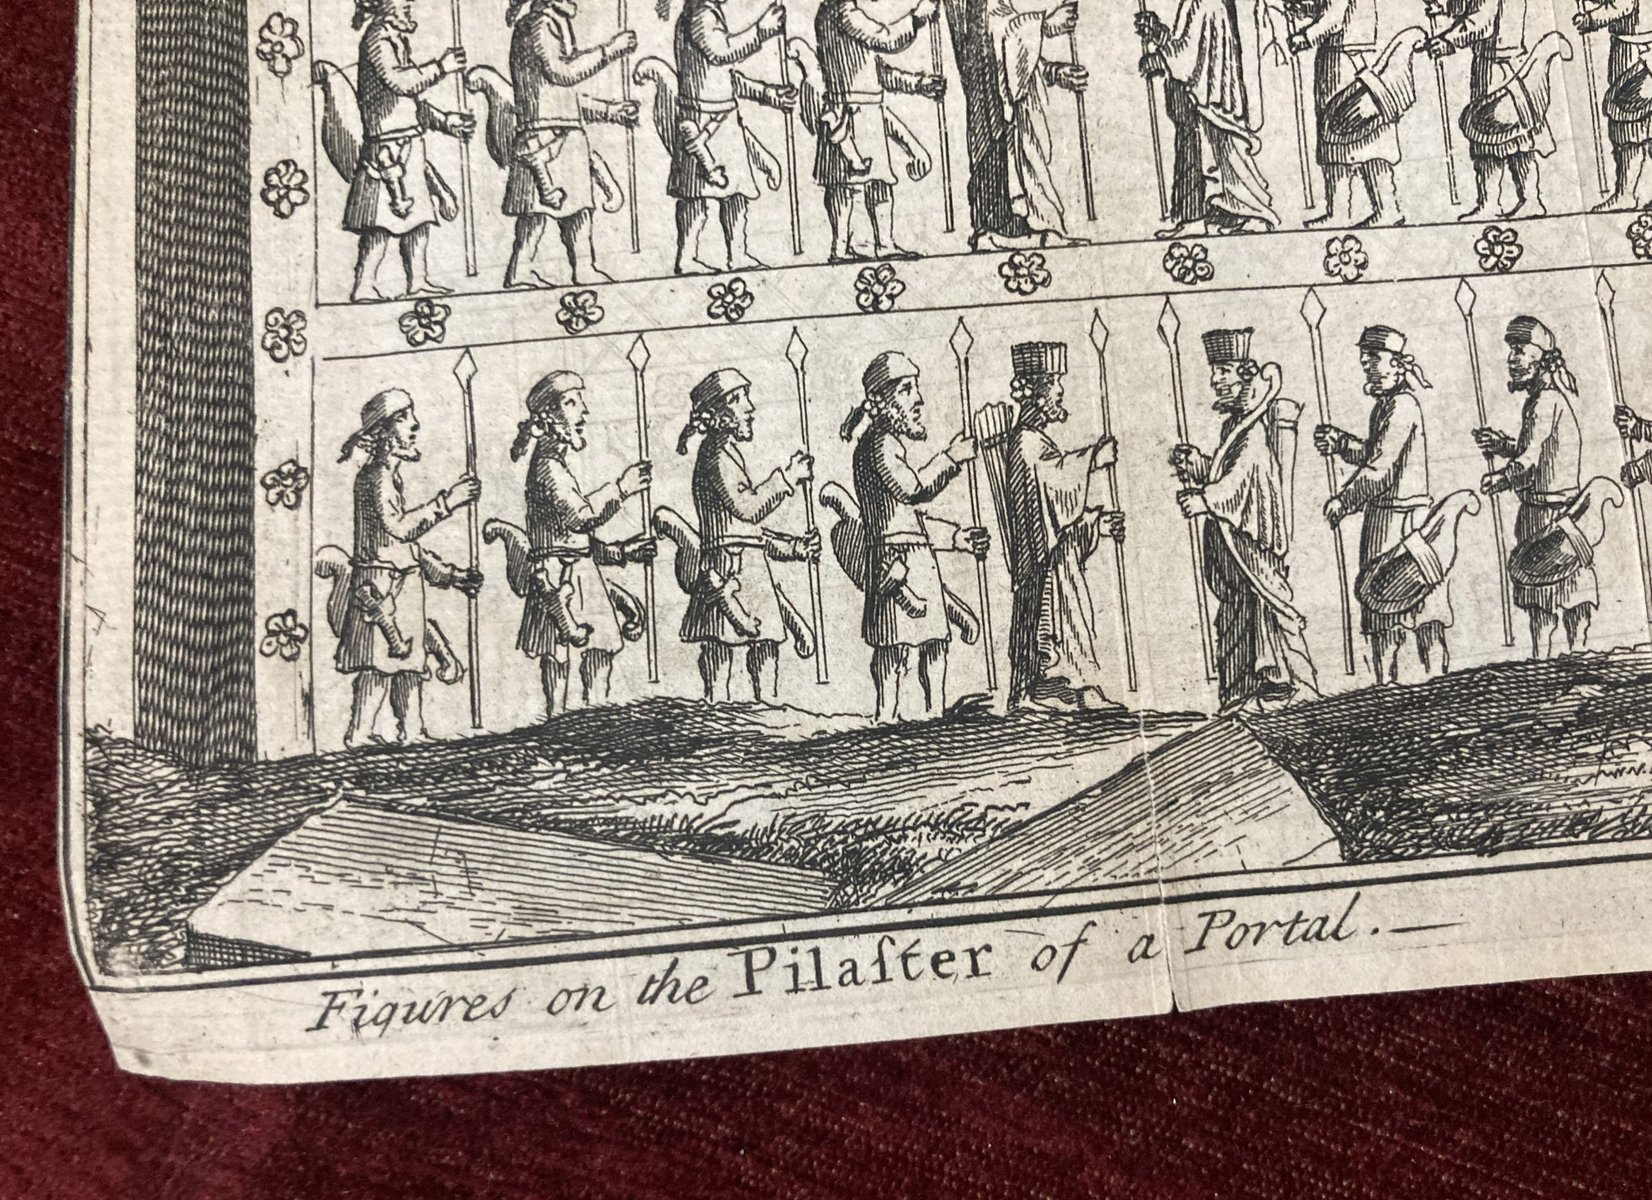 Figures on the Pilaſter of a Portal.—